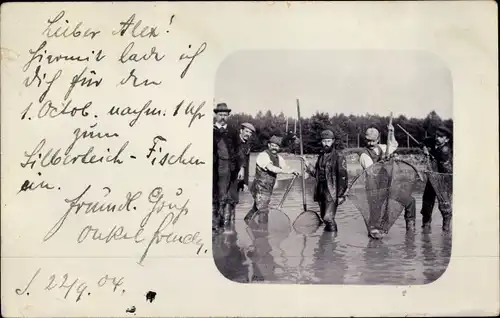 Lieber Alex!
hiermit lade ich
Dich für den
1. Octob. nachm. 1 Uhr
zum
Silberteich-Fischen
ein.
freundl. Gruß
Onkel
22/9. 04.